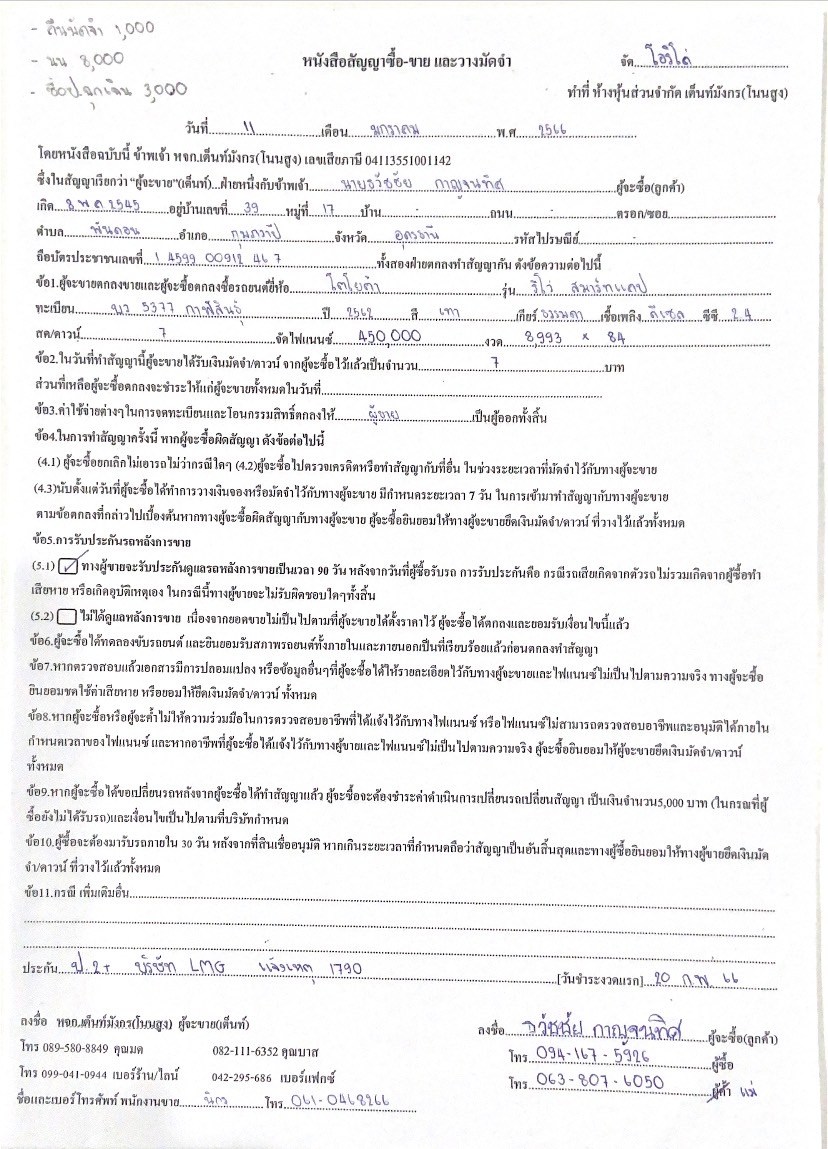 - คืนมัดจำ 1,000
- นน 8,000
- ซื้อป.ฉุกเฉิน 3,000
หนังสือสัญญาซื้อ-ขาย และวางมัดจำ
จัด....
ทำที่ ห้างหุ้นส่วนจำกัด เต็นท์มังกร(โนนสูง)
วันที่ 11 เดือน มกราคม พ.ศ 2566
โดยหนังสือฉบับนี้ ข้าพเจ้า หจก.เต็นท์มังกร(โนนสูง) เลขเสียภาษี 04113551001142
ซึ่งในสัญญาเรียกว่า "ผู้จะขาย"(เต็นท์)...ฝ่ายหนึ่งกับข้าพเจ้า นายธวัชชัย กาญจนทิศ ผู้จะซื้อ(ลูกค้า)
เกิด 8 พ.ค 2545 อยู่บ้านเลขที่ 39 หมู่ที่ 17 บ้าน - ถนน - ตรอก/ซอย
ตำบล พันดอน อำเภอ กุมภวาปี จังหวัด อุดรธานี รหัสไปรษณีย์
ถือบัตรประชาชนเลขที่ 1 4599 00912 46 7 ทั้งสองฝ่ายตกลงทำสัญญากัน ดังข้อความต่อไปนี้
ข้อ1.ผู้จะขายตกลงขายและผู้จะซื้อตกลงซื้อรถยนต์ยี่ห้อ โตโยต้า รุ่น รีโว่ สมาร์ทแคป
ทะเบียน บว 5377 กาฬสินธุ์ ปี 2562 สี เทา เกียร์ ธรรมดา เชื้อเพลิง ดีเซล ซีซี 2.4
สด/ดาวน์ 7 จัดไฟแนนซ์ 450,000 งวด 8,993 × 84
ข้อ2.ในวันที่ทำสัญญานี้ผู้จะขายได้รับเงินมัดจำ/ดาวน์ จากผู้จะซื้อไว้แล้วเป็นจำนวน 7 บาท
ส่วนที่เหลือผู้จะซื้อตกลงจะชำระให้แก่ผู้จะขายทั้งหมดในวันที่
ข้อ3.ค่าใช้จ่ายต่างๆในการจดทะเบียนและโอนกรรมสิทธิ์ตกลงให้ ผู้ขาย เป็นผู้ออกทั้งสิ้น
ข้อ4.ในการทำสัญญาครั้งนี้ หากผู้จะซื้อผิดสัญญา ดังข้อต่อไปนี้
(4.1) ผู้จะซื้อยกเลิกไม่เอารถไม่ว่ากรณีใดๆ (4.2)ผู้จะซื้อไปตรวจเครดิตหรือทำสัญญากับที่อื่น ในช่วงระยะเวลาที่มัดจำไว้กับทางผู้จะขาย
(4.3)นับตั้งแต่วันที่ผู้จะซื้อได้ทำการวางเงินจองหรือมัดจำไว้กับทางผู้จะขาย มีกำหนดระยะเวลา 7 วัน ในการเข้ามาทำสัญญากับทางผู้จะขาย
ตามข้อตกลงที่กล่าวไปเบื้องต้นหากทางผู้จะซื้อผิดสัญญากับทางผู้จะขาย ผู้จะซื้อยินยอมให้ทางผู้จะขายยึดเงินมัดจำ/ดาวน์ ที่วางไว้แล้วทั้งหมด
ข้อ5.การรับประกันรถหลังการขาย
(5.1) ✓ ทางผู้ขายจะรับประกันดูแลรถหลังการขายเป็นเวลา 90 วัน หลังจากวันที่ผู้ซื้อรับรถ การรับประกันคือ กรณีรถเสียเกิดจากตัวรถไม่รวมเกิดจากผู้ซื้อทำ
เสียหาย หรือเกิดอุบัติเหตุเอง ในกรณีนี้ทางผู้ขายจะไม่รับผิดชอบใดๆทั้งสิ้น
(5.2) ไม่ได้ดูแลหลังการขาย เนื่องจากยอดขายไม่เป็นไปตามที่ผู้จะขายได้ตั้งราคาไว้ ผู้จะซื้อได้ตกลงและยอมรับเงื่อนไขนี้แล้ว
ข้อ6.ผู้จะซื้อได้ทดลองขับรถยนต์ และยินยอมรับสภาพรถยนต์ทั้งภายในและภายนอกเป็นที่เรียบร้อยแล้วก่อนตกลงทำสัญญา
ข้อ7.หากตรวจสอบแล้วเอกสารมีการปลอมแปลง หรือข้อมูลอื่นๆที่ผู้จะซื้อได้ให้รายละเอียดไว้กับทางผู้จะขายและไฟแนนซ์ไม่เป็นไปตามความจริง ทางผู้จะซื้อ
ยินยอมชดใช้ค่าเสียหาย หรือยอมให้ยึดเงินมัดจำ/ดาวน์ ทั้งหมด
ข้อ8.หากผู้จะซื้อหรือผู้จะค้ำไม่ให้ความร่วมมือในการตรวจสอบอาชีพที่ได้แจ้งไว้กับทางไฟแนนซ์ หรือไฟแนนซ์ไม่สามารถตรวจสอบอาชีพและอนุมัติได้ภายใน
กำหนดเวลาของไฟแนนซ์ และหากอาชีพที่ผู้จะซื้อได้แจ้งไว้กับทางผู้ขายและไฟแนนซ์ไม่เป็นไปตามความจริง ผู้จะซื้อยินยอมให้ผู้จะขายยึดเงินมัดจำ/ดาวน์
ทั้งหมด
ข้อ9.หากผู้จะซื้อ ได้ขอเปลี่ยนรถหลังจากผู้จะซื้อได้ทำสัญญาแล้ว ผู้จะซื้อจะต้องชำระค่าดำเนินการเปลี่ยนรถเปลี่ยนสัญญา เป็นเงินจำนวน5,000 บาท (ในกรณที่ผู้
ซื้อยังไม่ได้รับรถ)และเงื่อนไขเป็นไปตามที่บริษัทกำหนด
ข้อ10.ผู้ซื้อจะต้องมารับรถภายใน 30 วัน หลังจากที่สินเชื่ออนุมัติ หากเกินระยะเวลาที่กำหนดถือว่าสัญญาเป็นอันสิ้นสุดและทางผู้ซื้อยินยอมให้ทางผู้ขายยึดเงินมัด
จำ/ดาวน์ ที่วางไว้แล้วทั้งหมด
ข้อ11.กรณี เพิ่มเติมอื่น
ประกัน ป.2+ บริษัท LMG แจ้งเหตุ 1790 [วันชำระงวดแรก] 20 ก.พ 66
ลงชื่อ หจก.เต็นท์มังกร(โนนสูง) ผู้จะขาย(เต็นท์)
ลงชื่อ ธวัชชัย กาญจนทิศ ผู้จะซื้อ(ลูกค้า)
โทร 089-580-8849 คุณมด 082-111-6352 คุณบาส
โทร 094-167-5926 ผู้ซื้อ
โทร 099-041-0944 เบอร์ร้าน/ไลน์ 042-295-686 เบอร์แฟกซ์
โทร 063-807-6050 ผู้ค้ำ แม่
ชื่อและเบอร์โทรศัพท์ พนักงานขาย โทร 061-0468266